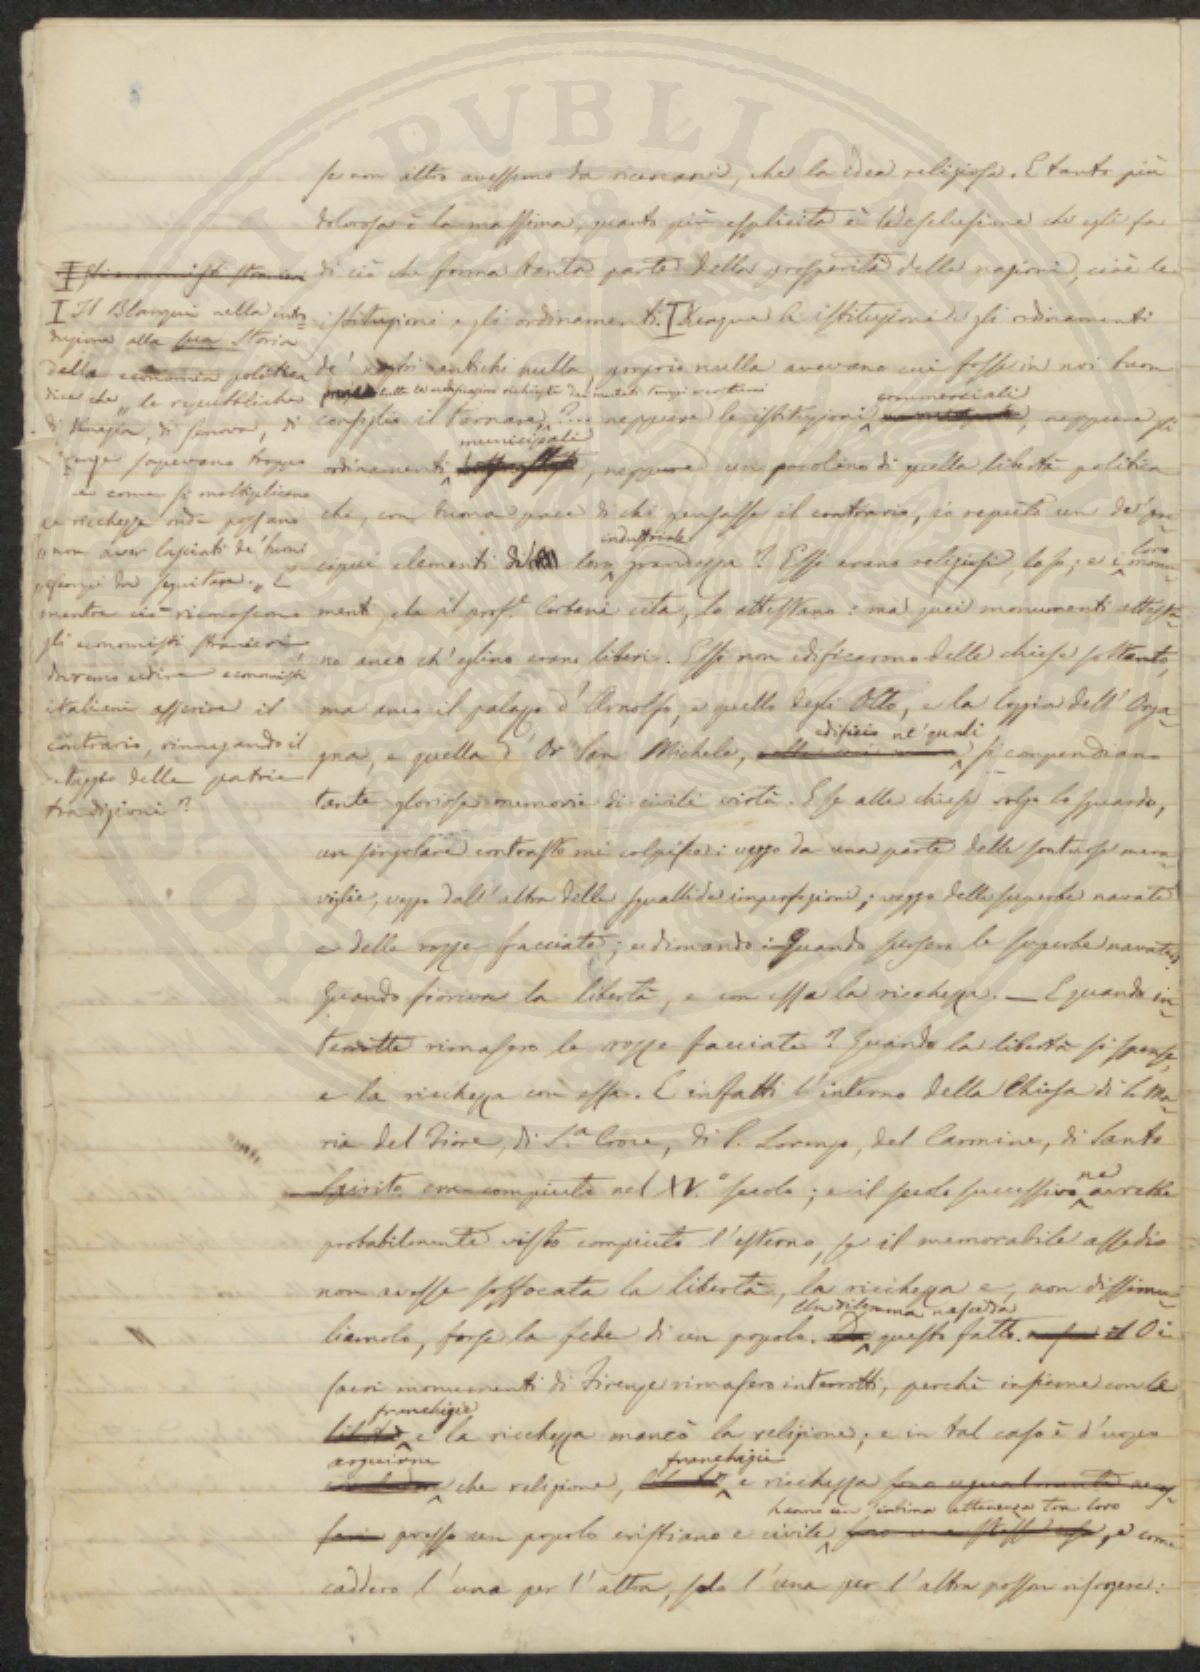 se non altro avessimo da ricercarvi, che la idea religiosa. E tanto più
dolorosa è la massima, quanto più esplicita è l'esclusione che egli fa
di ciò che forma tanta parte della prosperità delle nazioni, cioè le
istituzioni e gli ordinamenti. I Dunque le istituzioni e gli ordinamenti
de' nostri antichi nulla, proprio nulla avevano cui fosse in noi buon
tutte le modificazioni richieste dai mutati tempi e costumi
consiglio il tornare,?... neppure le istituzioni commerciali, neppure gli
ordinamenti municipali, neppure un pocolino di quella libertà politica
che, con buona pace di chi pensasse il contrario, io reputo un de' prin-
cipali elementi di loro industriale grandezza? Essi erano religiosi, lo so; e i loro monu-
menti che il prof.e Corbani cita, lo attestano: ma quei monumenti attesta-
no anco ch'eglino erano liberi. Essi non edificarono delle chiese soltanto,
ma anco il palazzo d'Arnolfo, e quello degli Otto, e la loggia dell'Orga-
gna, e quella d'Or San Michele, edifizio ne' quali si compendiano
tante gloriose memorie di civili virtù. E se alle chiese volgo lo sguardo,
un singolare contrasto mi colpisce: veggo da una parte delle sontuose mera-
viglie, veggo dall'altra delle squallide imperfezioni; veggo delle superbe navate
e delle rozze facciate; e dimando: Quando sursero le superbe navate?
Quando fioriva la libertà, e con essa la ricchezza. — E quando in-
terrotte rimasero le rozze facciate? Quando la libertà si spense,
e la ricchezza con essa. E infatti l'interno della Chiesa di S. Ma-
ria del Fiore, di S.a Croce, di S. Lorenzo, del Carmine, di Santo
Spirito era compiuto nel XV.o secolo; e il secolo successivo ne avrebbe
probabilmente visto compiuto l'esterno, se il memorabile assedio
non avesse soffocata la libertà, la ricchezza e, non dissimu-
liamolo, forse la fede di un popolo. Un dilemma nasce da questo fatto. O i
sacri monumenti di Firenze rimasero interrotti, perchè insieme con le
libertà franchigie e la ricchezza mancò la religione; e in tal caso è d'uopo
arguirne che religione, libertà franchigie e ricchezza sono ugualmente neces-
sarie presso un popolo cristiano e civile hanno un'intima attenenza tra loro, e come
caddero l'una per l'altra, solo l'una per l'altra posson risorgere:
I Gli economisti stranieri
I Il Blanqui nella intro-
duzione alla sua Storia
della economia politica
dice che „ le repubbliche
di Venezia, di Genova, di
Firenze sapevano troppo
e come si moltiplicano
le ricchezze onde possano
„ non aver lasciati de' buoni
esempi da seguitare. „ E
mentre ciò riconoscono
gli economisti stranieri,
dovremo udire economisti
italiani asserire il
contrario, rinnegando il
retaggio delle patrie
tradizioni?